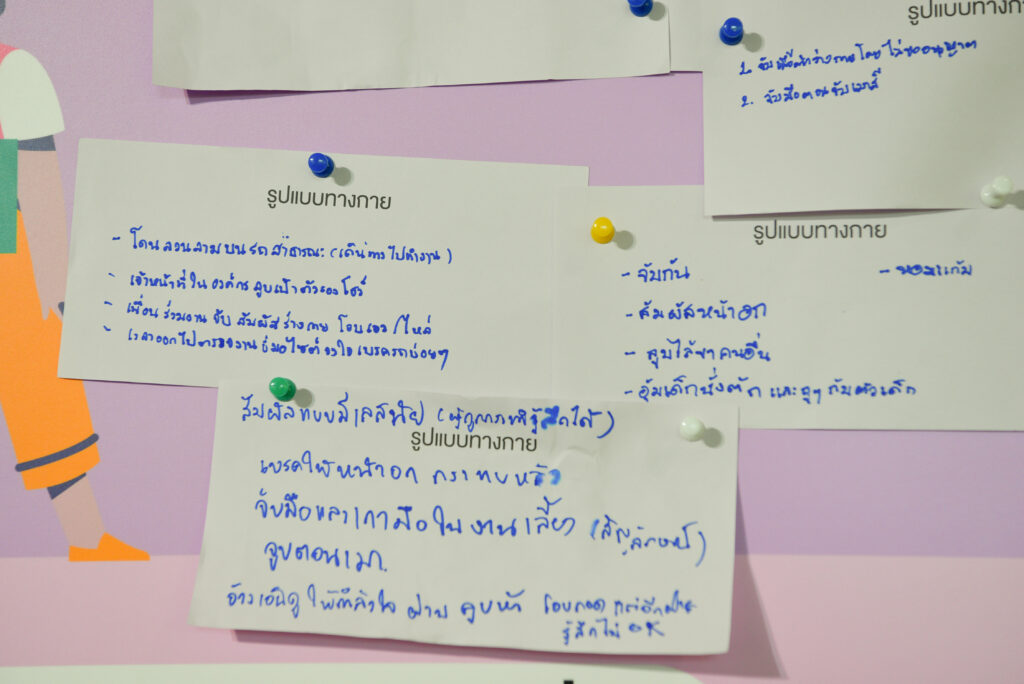 รูปแบบทางกาย
1. จับมือสัมผัสร่างกายโดยไม่ขออนุญาต
2. จับมือตอนจับเมาส์
รูปแบบทางกาย
- โดนลวนลามบนรถสาธารณะ (เดินทางไปทำงาน)
- เจ้าหน้าที่ในองค์กรลูบเป้าตัวเองโชว์
- เพื่อนร่วมงาน จับ สัมผัสร่างกาย โอบเอว/ไหล่
- เวลาออกไป งาน ขี่มอไซต์จงใจเบรครถบ่อยๆ
รูปแบบทางกาย
- จับก้น
- หอมแก้ม
- สัมผัสหน้าอก
- ลูบไล้ขาคนอื่น
- อุ้มเด็กนั่งตัก และถูๆ กับตัวเด็ก
สัมผัสแบบมีเลสนัย (ผู้ถูกกระทำรู้สึกได้)
รูปแบบทางกาย
เบรคให้หน้าอก กระทบหลัง
จับมือและเกามือในงานเลี้ยง (สัญลักษณ์)
จูบตอนเมา
อ้างเอ็นดู ให้กำลังใจ ผ่าน ลูบหัว โอบกอด แต่อีกฝ่าย
รู้สึกไม่ OK